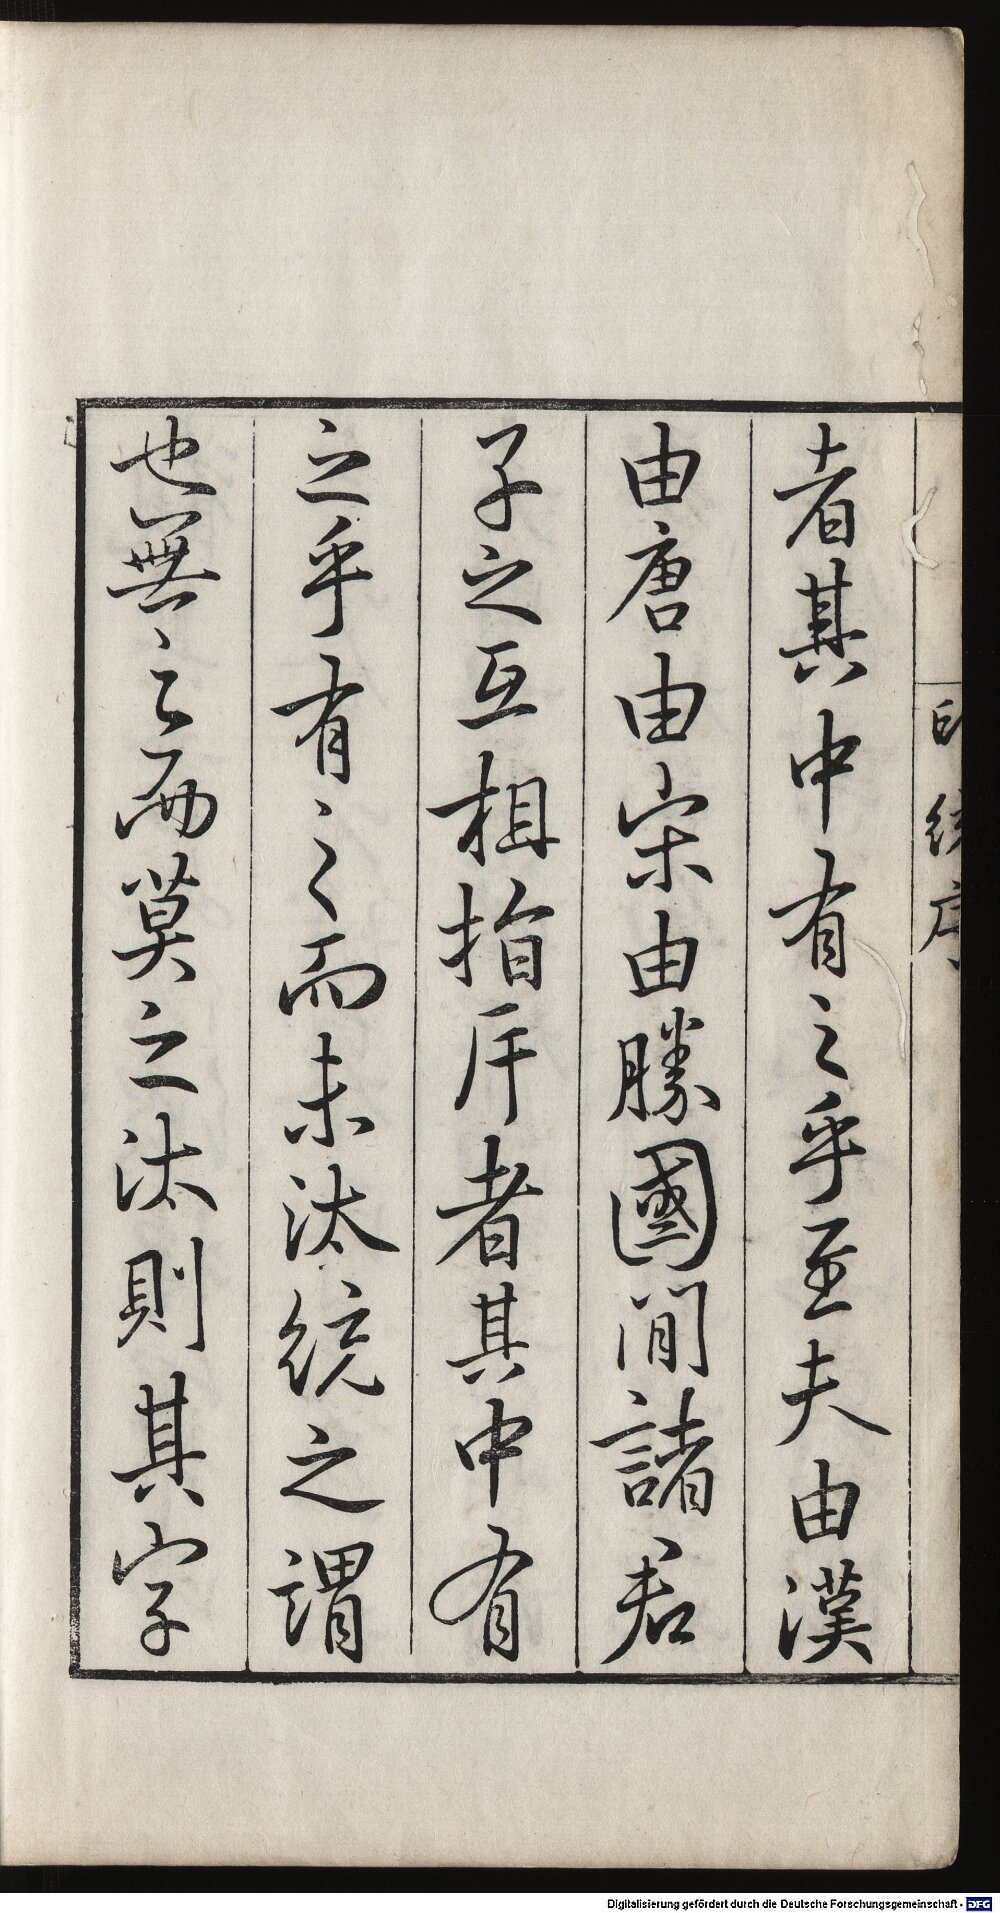 印統序
者其中有之乎至夫由漢
由唐由宋由勝國間諸君
子之互相指斥者其中有
之乎有之而未汰統之謂
也無之而莫之汰則其字
Digitalisierung gefördert durch die Deutsche Forschungsgemeinschaft - DFG